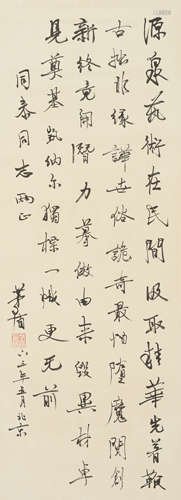 源泉藝術在民間汲取精華先着鞭
古拙非緣譁世俗詭奇最怕墮魔關創
新終竟開潛力摹倣由來毀異材卓
見奠基凱納尔獨標一幟更无前
同泰同志兩正
茅盾 六三年五月北京